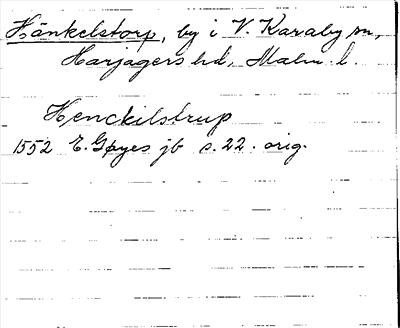 Hänkelstorp, by i V. Karaby sn,
Harjagers hd, Malm. l.
Henckilstrup
1552 E. Gøyes jb s. 22. orig.